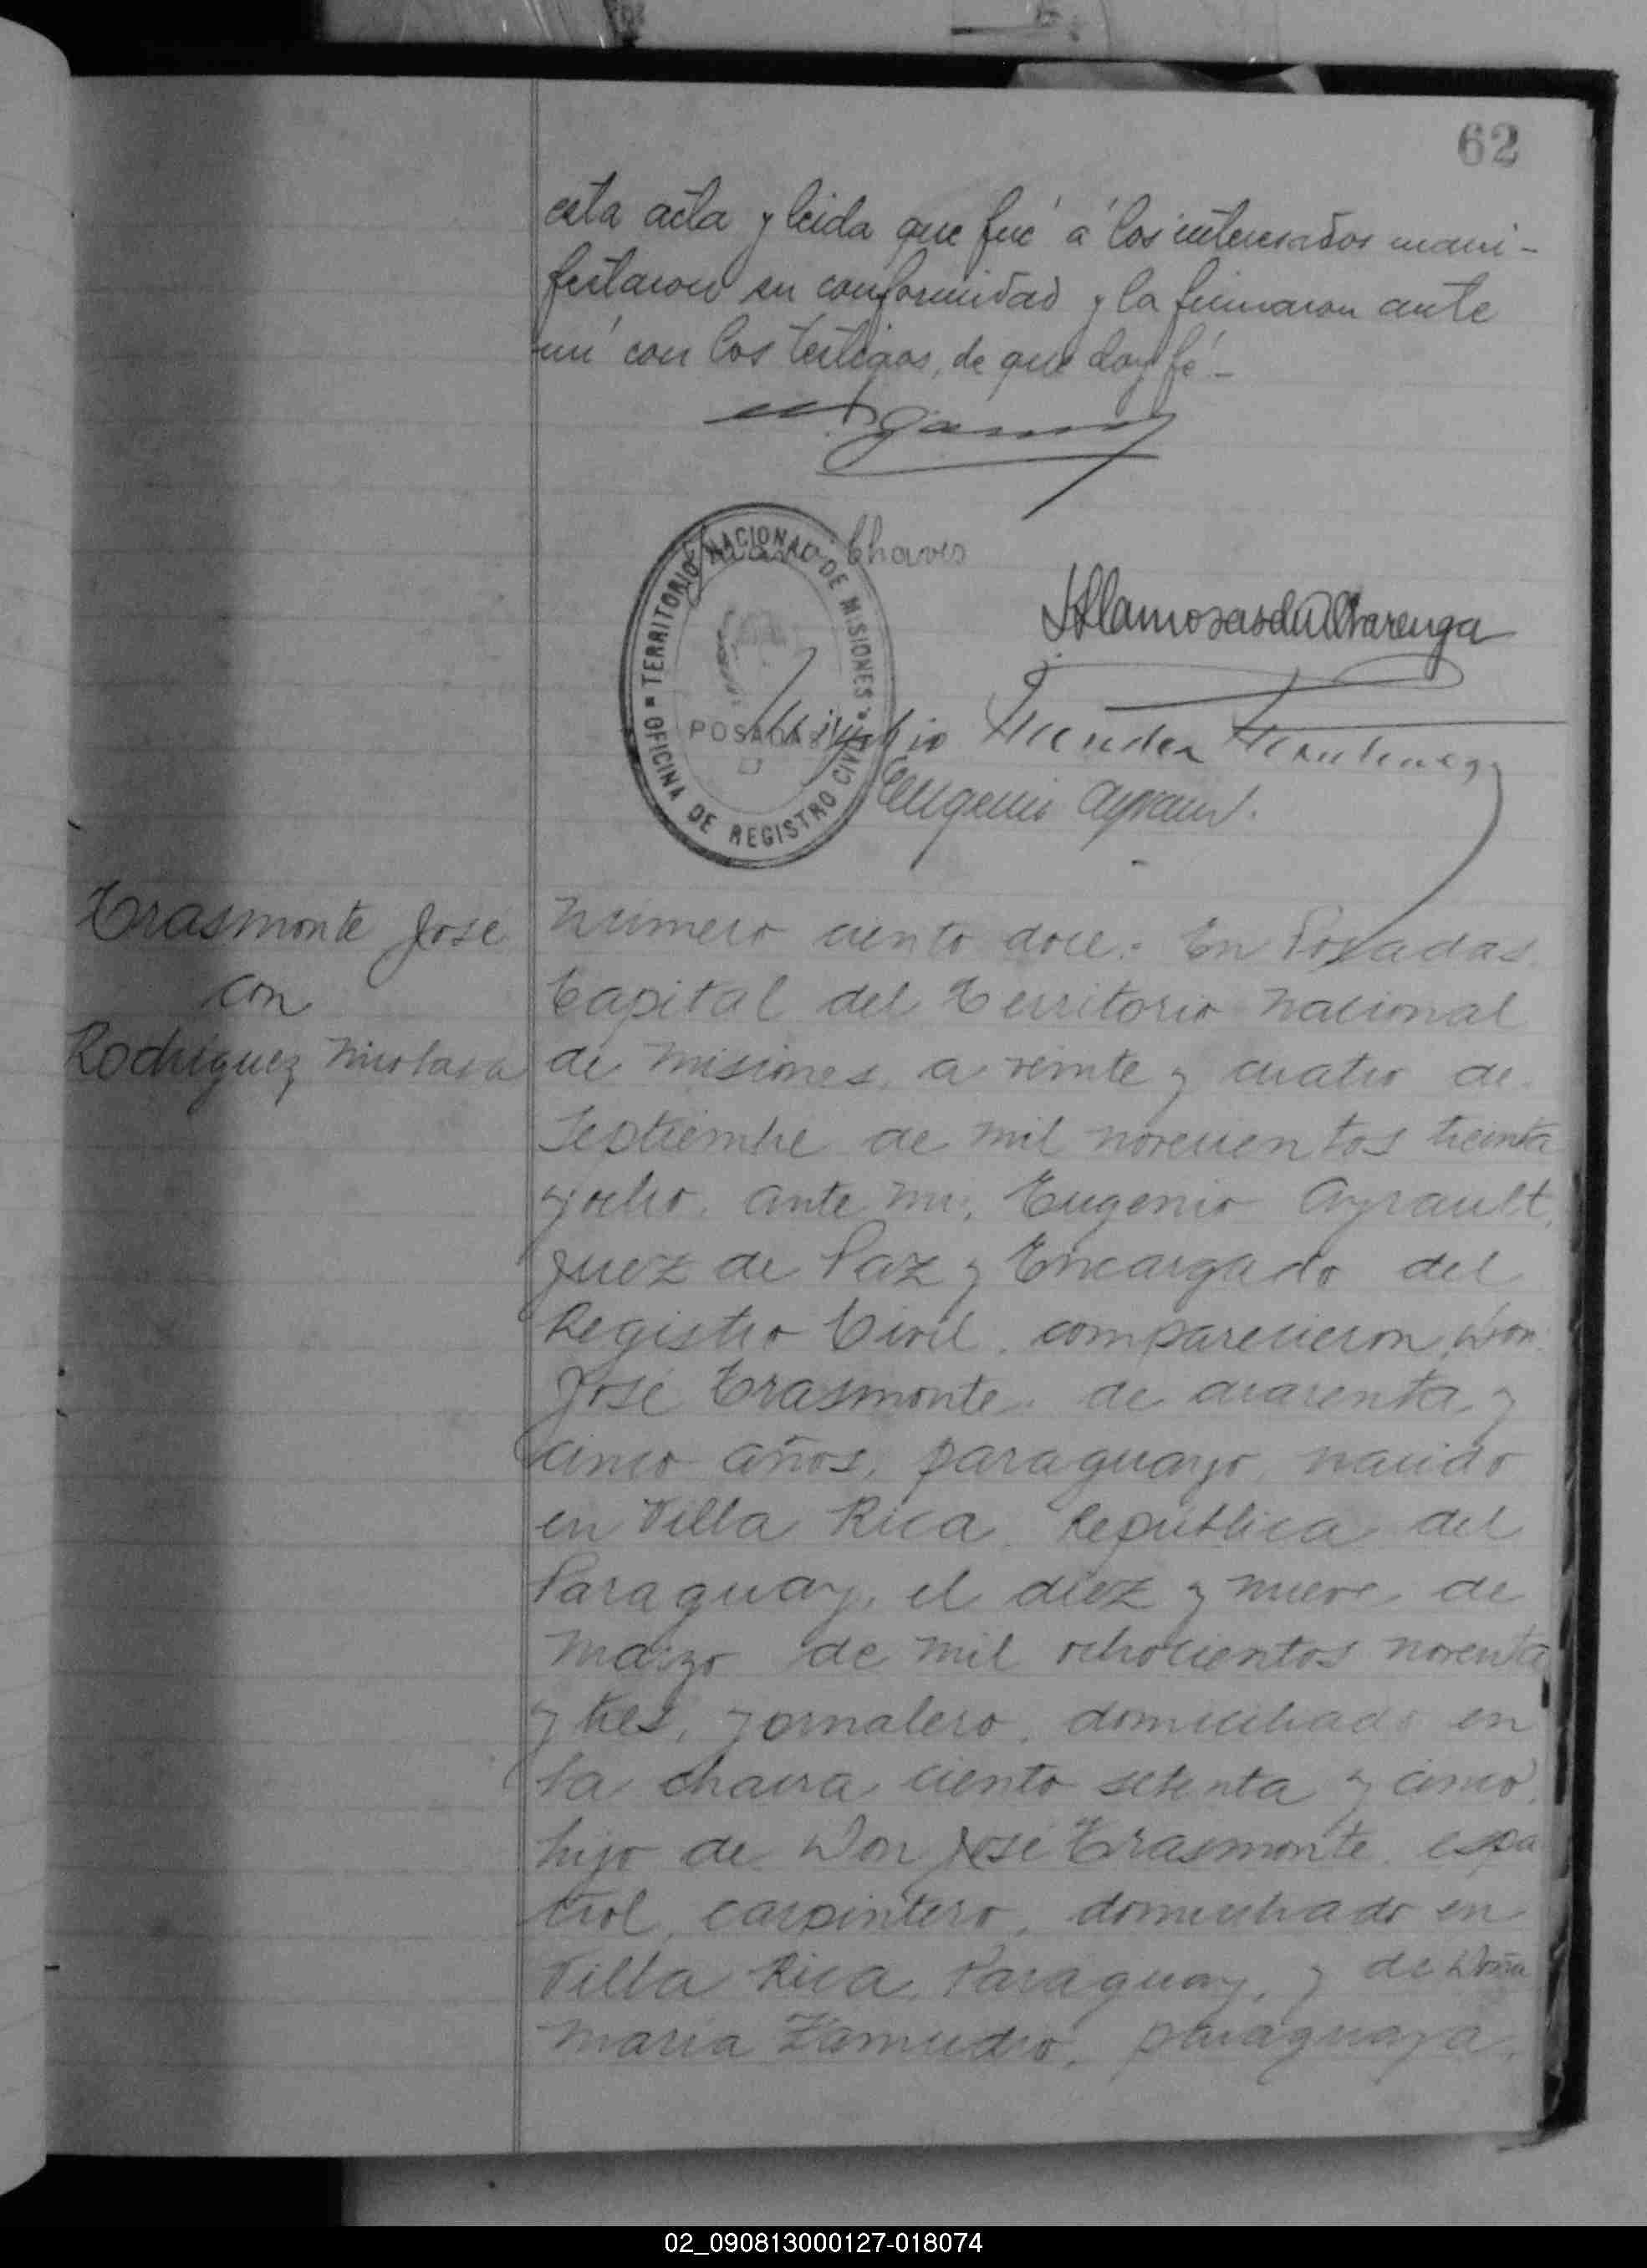 62
esta acta y leida que fué á los interesados mani-
festaron su conformidad y la firmaron ante
mí con los testigos, de que doy fé-
Chaves
TERRITORIO NACIONAL DE MISIONES
POSADAS
OFICINA DE REGISTRO CIVIL
Llamosas de Alvarenga
Eugenio Ayrault.
Trasmonte José
con
Rodríguez Nicolasa
Número ciento doce: En Posadas
Capital del Territorio Nacional
de Misiones, a veinte y cuatro de
Septiembre de mil novecientos treinta
y ocho, ante mi, Eugenio Ayrault,
Juez de Paz y Encargado del
Registro Civil, comparecieron, Don
José Trasmonte, de cuarenta y
cinco años, paraguayo, nacido
en Villa Rica, República del
Paraguay, el diez y nueve de
Marzo de mil ochocientos noventa
y tres, jornalero, domiciliado en
la chacra ciento setenta y cinco,
hijo de Don José Trasmonte, espa
ñol, carpintero, domiciliado en
Villa Rica, Paraguay, y de Doña
Maria Zamudio, paraguaya,
02_090813000127-018074